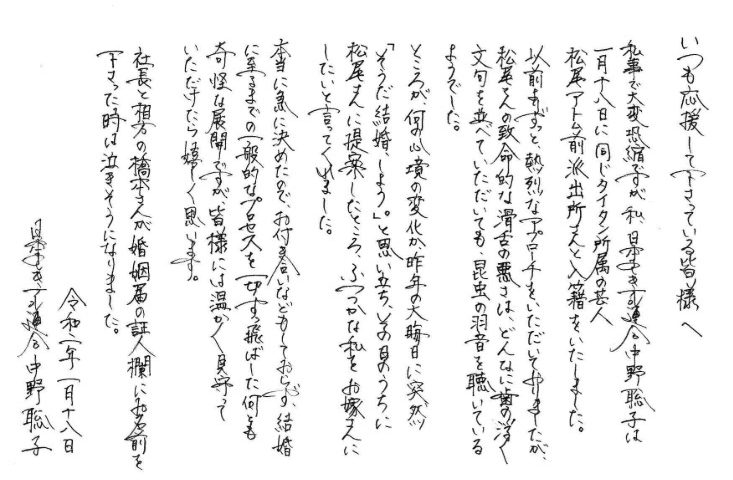 いつも応援して下さっている皆様へ
私事で大変恐縮ですが、私、日本エレキテル連合中野聡子は
一月十八日に同じタイタン所属の芸人
松尾アトム前派出所さんと入籍をいたしました。
以前よりずっと、熱烈なアプローチをいただいておりましたが、
松尾さんの致命的な滑舌の悪さは、どんなに歯の浮く
文句を並べていただいても、昆虫の羽音を聴いている
ようでした。
ところが、何の心境の変化か、昨年の大晦日に突然
「そうだ結婚、しよう。」と思い立ち、その日のうちに
松尾さんに提案したところ、ふつつかな私をお嫁さんに
したいと言ってくれました。
本当に急に決めたので、お付き合いなどもしておらず、結婚
に至るまでの一般的なプロセスを一切すっ飛ばした何とも
奇怪な展開ですが、皆様には温かく見守って
いただけたら嬉しく思います。
社長と相方の橋本さんが婚姻届の証人欄にお名前を
下さった時は泣きそうになりました。
令和二年一月十八日
日本エレキテル連合 中野聡子